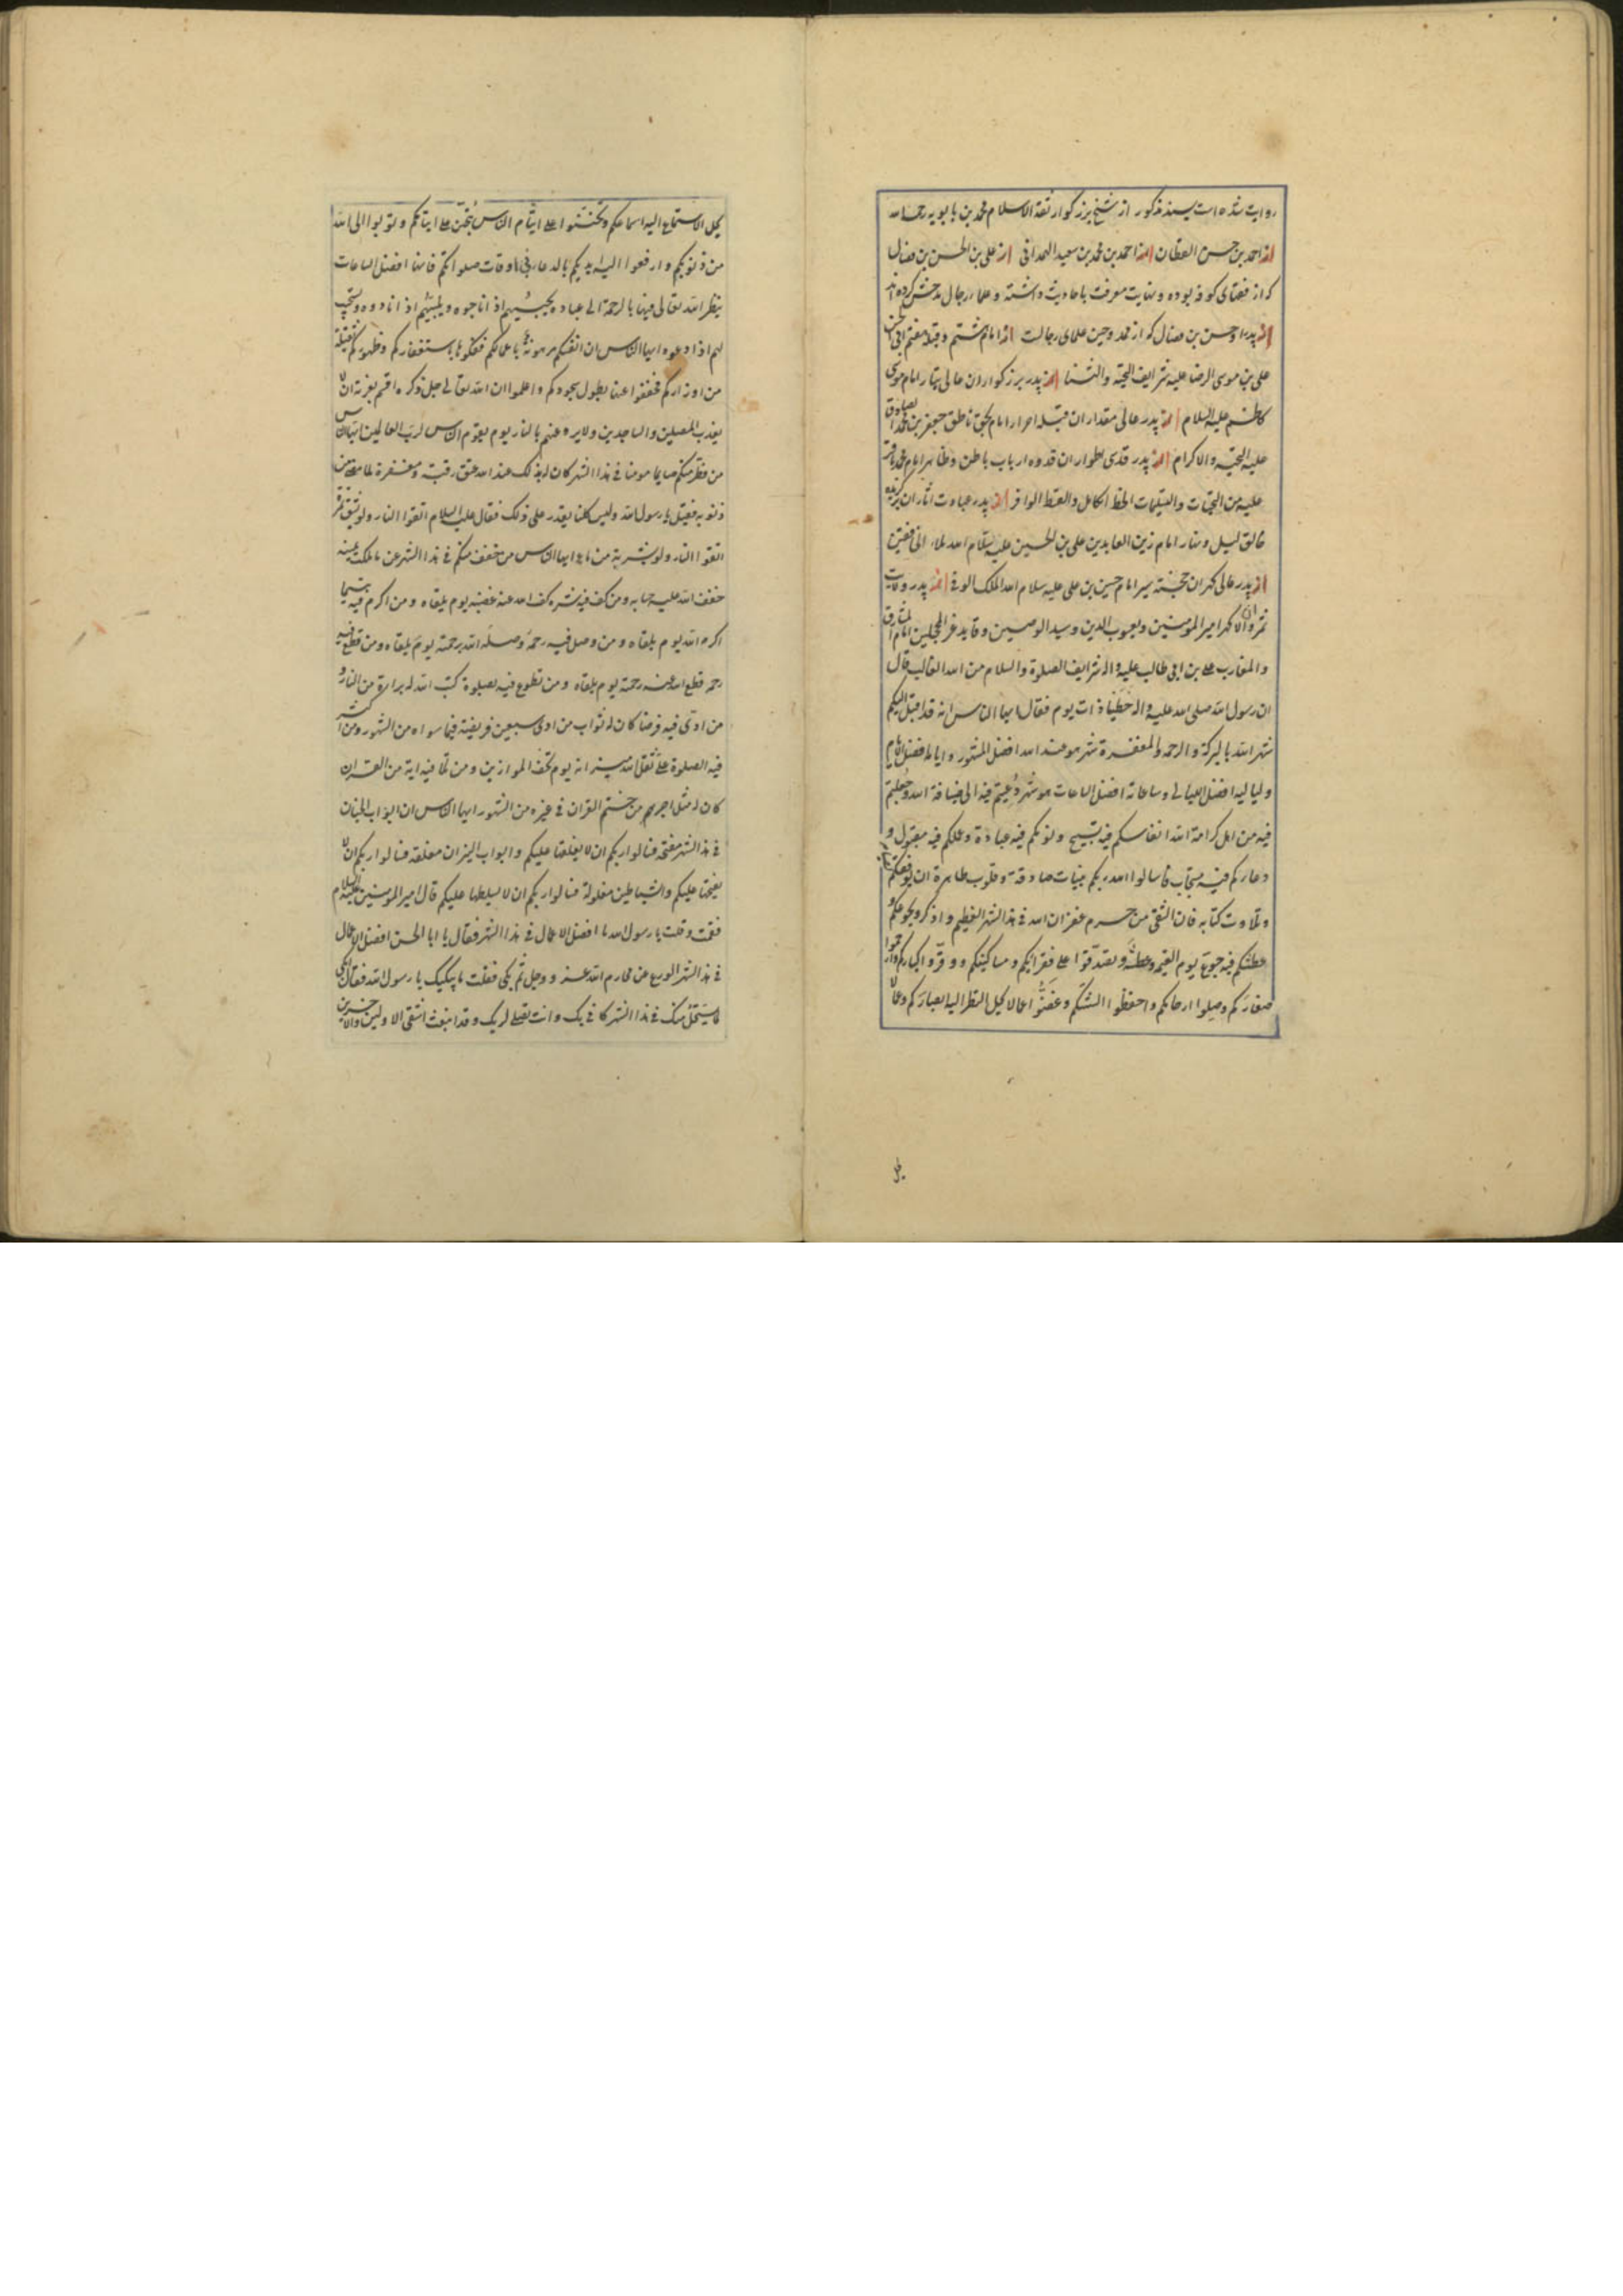 روایت شده است بسند مذکور از شیخ بزرگوار ثقة الاسلام محمد بن بابویه رحمه الله
از احمد بن حسن القطان از احمد بن محمد بن سعید الهمدانی از علی بن الحسن بن فضال
که از فضلای کوفه بوده و نهایت معرفت باحادیث داشته و علماء رجال مدحش کرده اند
از پدر او حسن بن فضال که از ممدوحین علمای رجالست از امام هشتم و قبله هفتم ابی الحسن
علی بن موسی الرضا علیه شرایف التحیة والثنا از پدر بزرگوار ان عالی تبار امام موسی
کاظم علیه السلام از پدر عالی مقدار ان قبله احرار امام بحق ناطق جعفر بن محمد الصادق
علیه التحیة والاکرام از پدر قدسی اطوار ان قدوه ارباب باطن و ظاهر امام محمد باقر
علیه من التحیات والتسلیمات الحظ الکامل والقسط الوافر از پدر عبادت اثار ان برگزیده
خالق لیل و نهار امام زین العابدین علی بن الحسین علیه سلام الله ملاء الخافقین
از پدر عالی گهر ان خجسته سیر امام حسین بن علی علیه سلام الله الملک الوفی از پدر ولایت
ثمر ان والا گهر امیر المومنین و یعسوب الدین و سید الوصیین و قاید غر المحجلین امام المشارق
والمغارب علی بن ابی طالب علیه واله شرایف الصلوة والسلام من الله الغالب قال
ان رسول الله صلی الله علیه واله خطبنا ذات یوم فقال ایها الناس انه قد اقبل الیکم
شهر الله بالبرکة والرحمة والمغفرة شهر هو عند الله افضل الشهور وایامه افضل الایام
ولیالیه افضل اللیالی وساعاته افضل الساعات هو شهر دُعیتم فیه الی ضیافة الله وجُعلتم
فیه من اهل کرامة الله انفاسکم فیه تسبیح ونومکم فیه عبادة وعملکم فیه مقبول و
دعاؤکم فیه مستجاب فاسالوا الله ربکم بنیات صادقة وقلوب طاهرة ان یوفقکم
وتلاوت کتابه فان الشقی من حرم غفران الله فی هذا الشهر العظیم واذکروا بجوعکم و
عطشکم فیه جوع یوم القیمة وعطشه وتصدّقوا علی فقرائکم ومساکینکم ووقّروا کبارکم وارحموا
صغارکم وصِلوا ارحامکم واحفظوا السنتکم وغضّوا عما لا یحل النظر الیه ابصارکم وعمّا لا
یحل الاستماع الیه اسماعکم وتحنّنوا علی ایتام الناس یُتحنّن علی ایتامکم وتوبوا الی الله
من ذنوبکم وارفعوا الیه ایدیکم بالدعاء فی اوقات صلواتکم فانها افضل الساعات
ینظر الله تعالی فیها بالرحمة الی عباده یجیبهم اذا ناجوه ویلبّیهم اذا نادوه ویستجیب
لهم اذا دعوه ایها الناس ان انفسکم مرهونة باعمالکم ففکوها باستغفارکم وظهورکم ثقیلة
من اوزارکم فخففوا عنها بطول سجودکم واعلموا ان الله تعالی جل ذکره اقسم بعزته ان لا
یعذب المصلین والساجدین ولا یروعهم بالنار یوم یقوم الناس لرب العالمین ایها الناس
من فطّر منکم صایما مومنا فی هذا الشهر کان له بذلک عند الله عتق رقبة ومغفرة لما مضی من
ذنوبه فقیل یا رسول الله ولیس کلنا یقدر علی ذلک فقال علیه السلام اتقوا النار ولو بشق تمرة
اتقوا النار ولو بشربة من ماء ایها الناس من خفف منکم فی هذا الشهر عن ما ملکت یمینه
خفف الله علیه حسابه ومن کف فیه شره کف الله عنه غضبه یوم یلقاه ومن اکرم فیه یتیما
اکرمه الله یوم یلقاه ومن وصل فیه رحمه وصله الله برحمته یوم یلقاه ومن قطع فیه
رحمه قطع الله عنه رحمته یوم یلقاه ومن تطوع فیه بصلوة کتب الله له براءة من النار و
من ادّی فیه فرضا کان له ثواب من ادی سبعین فریضة فیما سواه من الشهور ومن اکثر
فیه الصلوة علیّ ثقل الله میزانه یوم تخف الموازین ومن تلا فیه ایة من القران
کان له مثل اجر من ختم القران فی غیره من الشهور ایها الناس ان ابواب الجنان
فی هذا الشهر مفتحة فسالوا ربکم ان لا یغلقها علیکم وابواب النیران مغلقة فسالوا ربکم ان لا
یفتحها علیکم والشیاطین مغلولة فسالوا ربکم ان لا یسلطها علیکم قال امیر المومنین علیه السلام
فقمت وقلت یا رسول الله ما افضل الاعمال فی هذا الشهر فقال یا ابا الحسن افضل الاعمال
فی هذا الشهر الورع عن محارم الله عز وجل ثم بکی فقلت ما یبکیک یا رسول الله فقال ابکی
لما یستحل منک فی هذا الشهر کانی بک وانت تصلی لربک وقد انبعث اشقی الاولین والاخرین